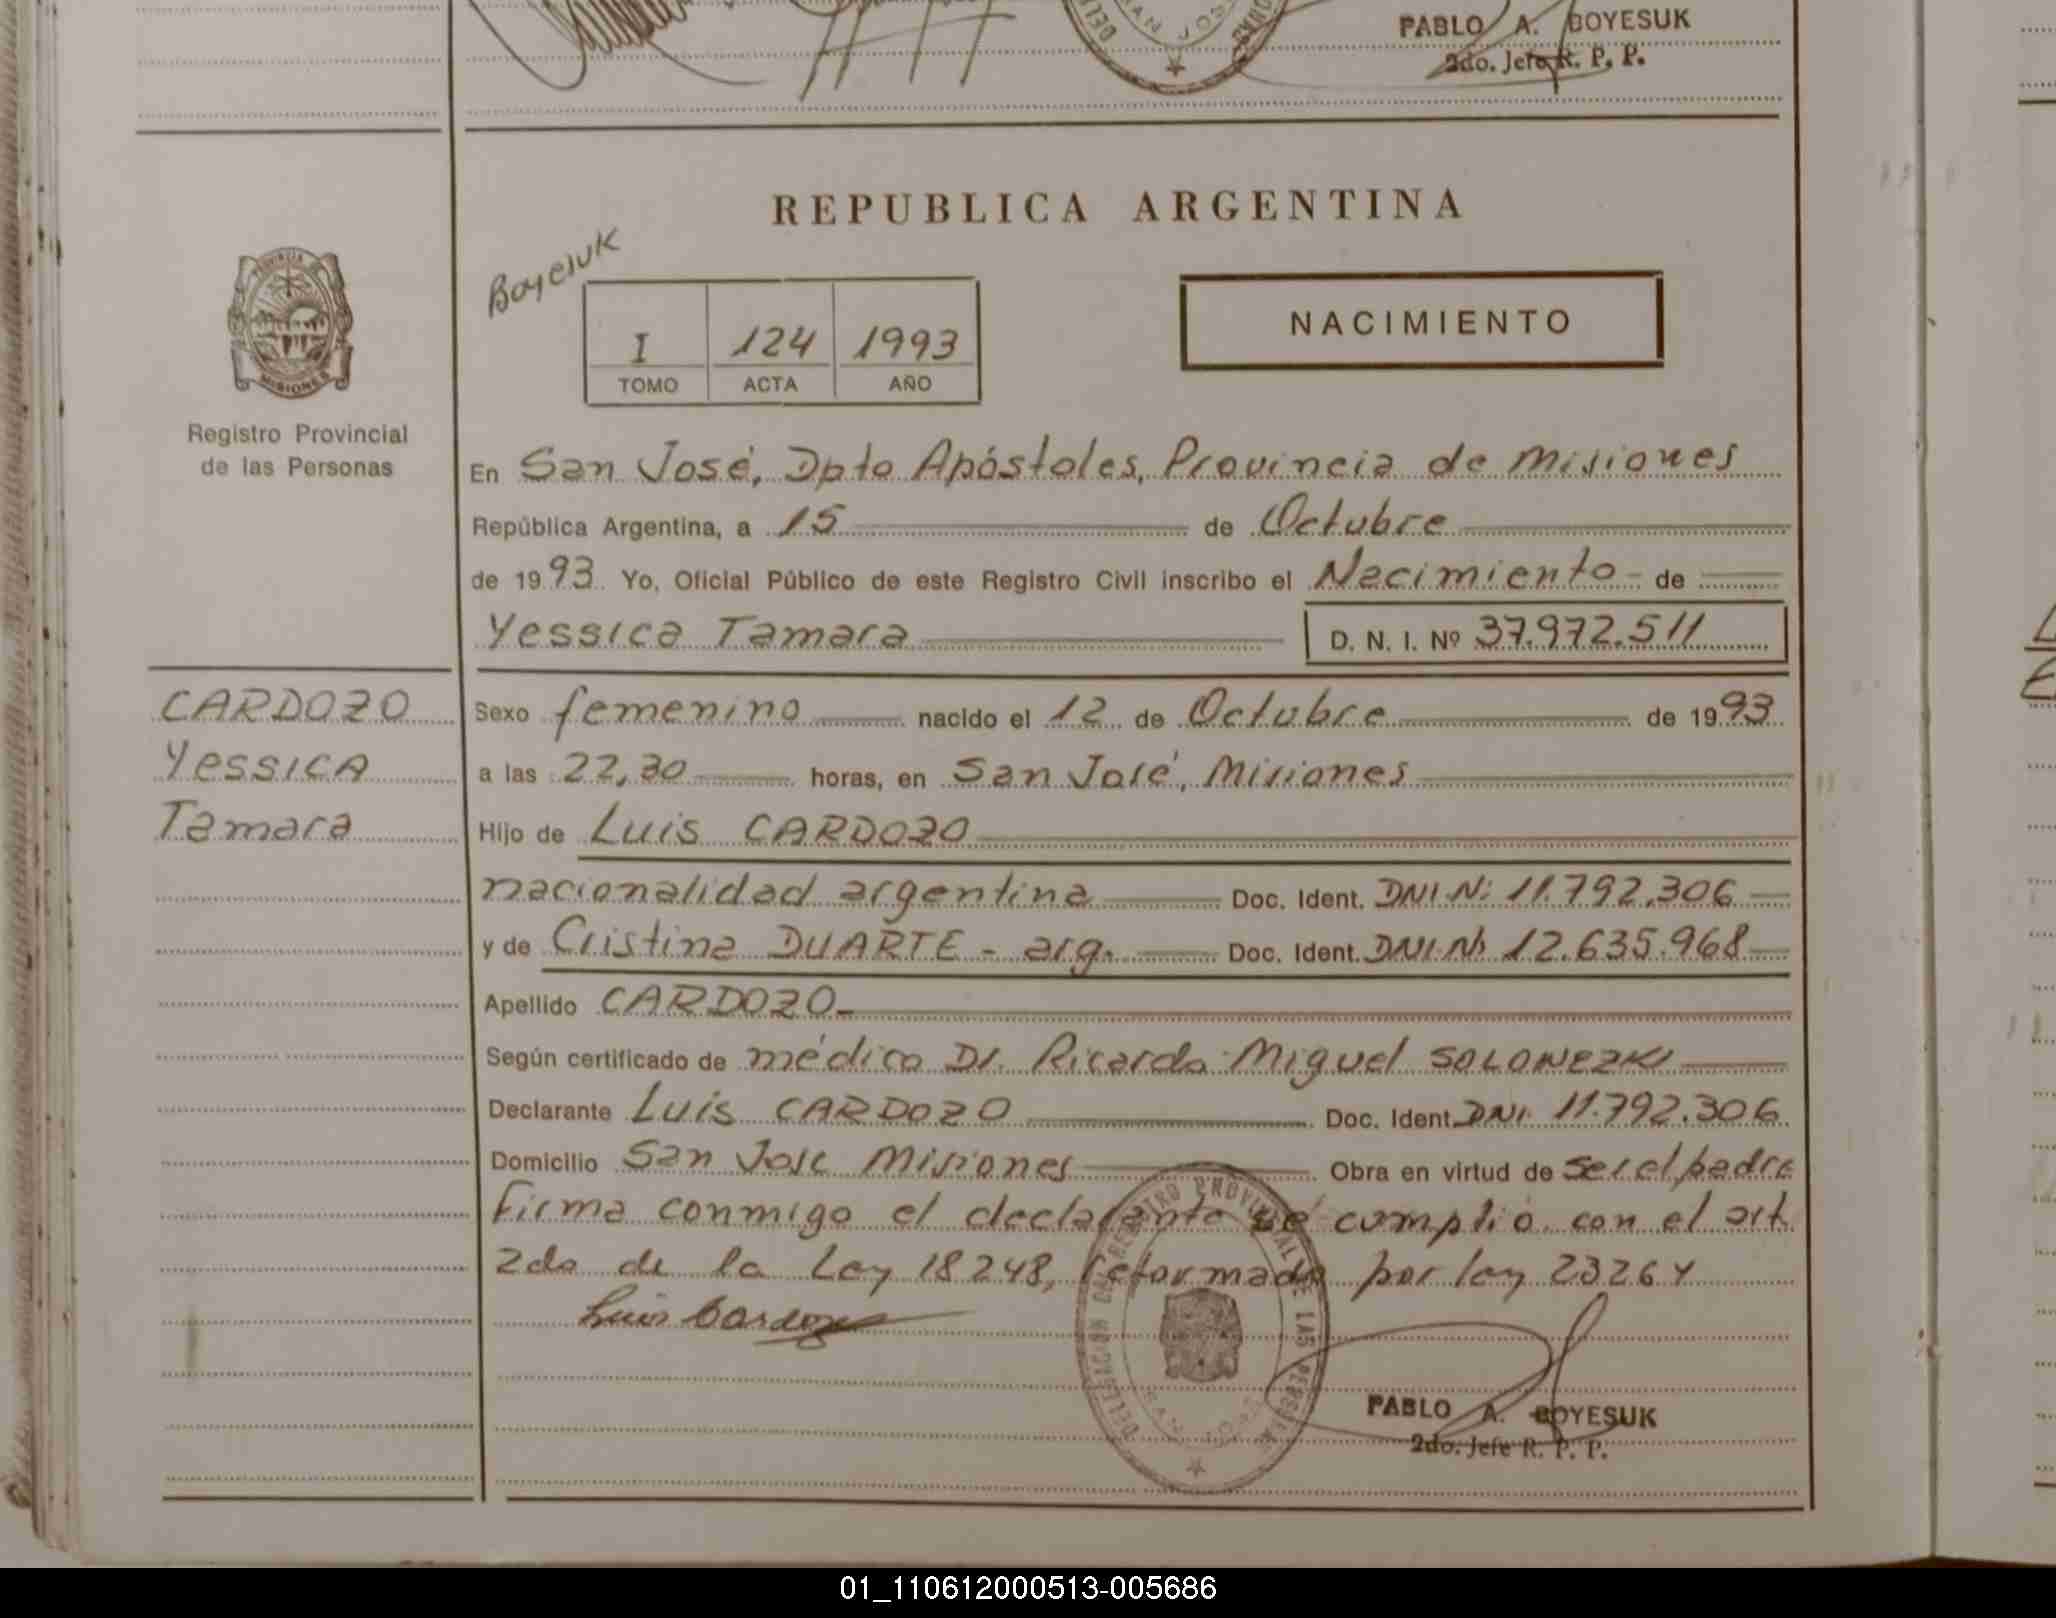 PABLO A. BOYESUK
2do. Jefe R. P. P.
REPUBLICA ARGENTINA
Boyesuk
NACIMIENTO
I 124 1993
TOMO ACTA AÑO
PROVINCIA DE
MISIONES
Registro Provincial
de las Personas
En San José, Dpto Apóstoles, Provincia de Misiones
República Argentina, a 15 de Octubre
de 1993 Yo, Oficial Público de este Registro Civil inscribo el Nacimiento - de
Yessica Tamara D. N. I. Nº 37.972.511
CARDOZO
Yessica
Tamara
Sexo femenino nacido el 12 de Octubre de 1993
a las 22,30 horas, en San José, Misiones
Hijo de Luis CARDOZO
nacionalidad argentina Doc. Ident. DNI Nº 11.792.306
y de Cristina DUARTE - arg. Doc. Ident. DNI Nº 12.635.968
Apellido CARDOZO
Según certificado de médico Dr. Ricardo Miguel SOLONEZKI
Declarante Luis CARDOZO Doc. Ident. DNI 11.792.306
Domicilio San Jose Misiones Obra en virtud de ser el padre
Firma conmigo el declarante se cumplió con el art
2do de la Ley 18248, reformado por ley 23264
Luis Cardozo
DELEGACION DEL REGISTRO PROVINCIAL DE LAS PERSONAS
SAN JOSE
PABLO A. BOYESUK
2do. Jefe R. P. P.
01_110612000513-005686